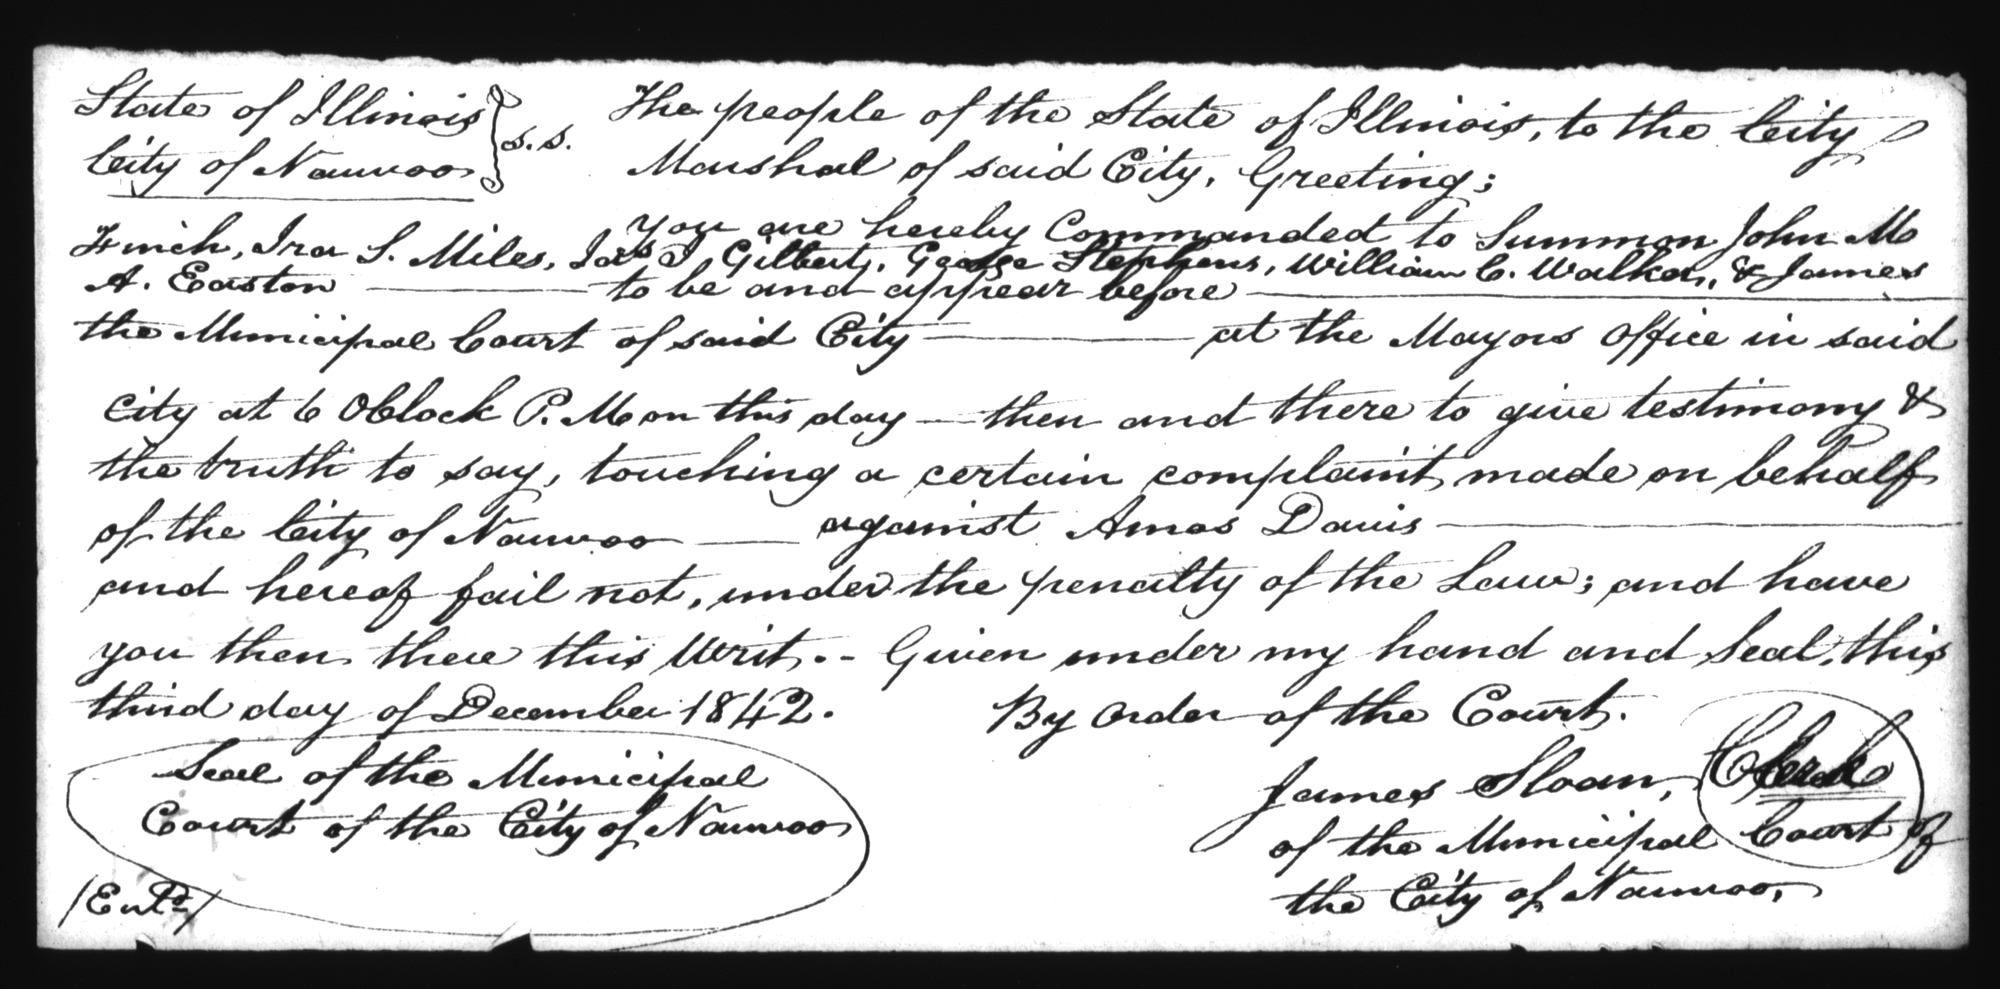 State of Illinois } s.s. The people of the State of Illinois, to the City
City of Nauvoo Marshal of said City, Greeting;
You are hereby Commanded to Summon John M
Finch, Ira S. Miles, Gilbert, George Stephens, William C. Walker, & James
A. Easton — to be and appear before —
the Municipal Court of said City — at the Mayors Office in said
City at 6 OClock P.M on this day — then and there to give testimony &
the truth to say, touching a certain complaint made on behalf
of the City of Nauvoo — against Amos Davis —
and hereof fail not, under the penalty of the Law; and have
you then there this Writ. – Given under my hand and Seal, this
third day of December 1842. By order of the Court.
Seal of the Municipal
Court of the City of Nauvoo
James Sloan, Clerk
of the Municipal Court of
the City of Nauvoo,